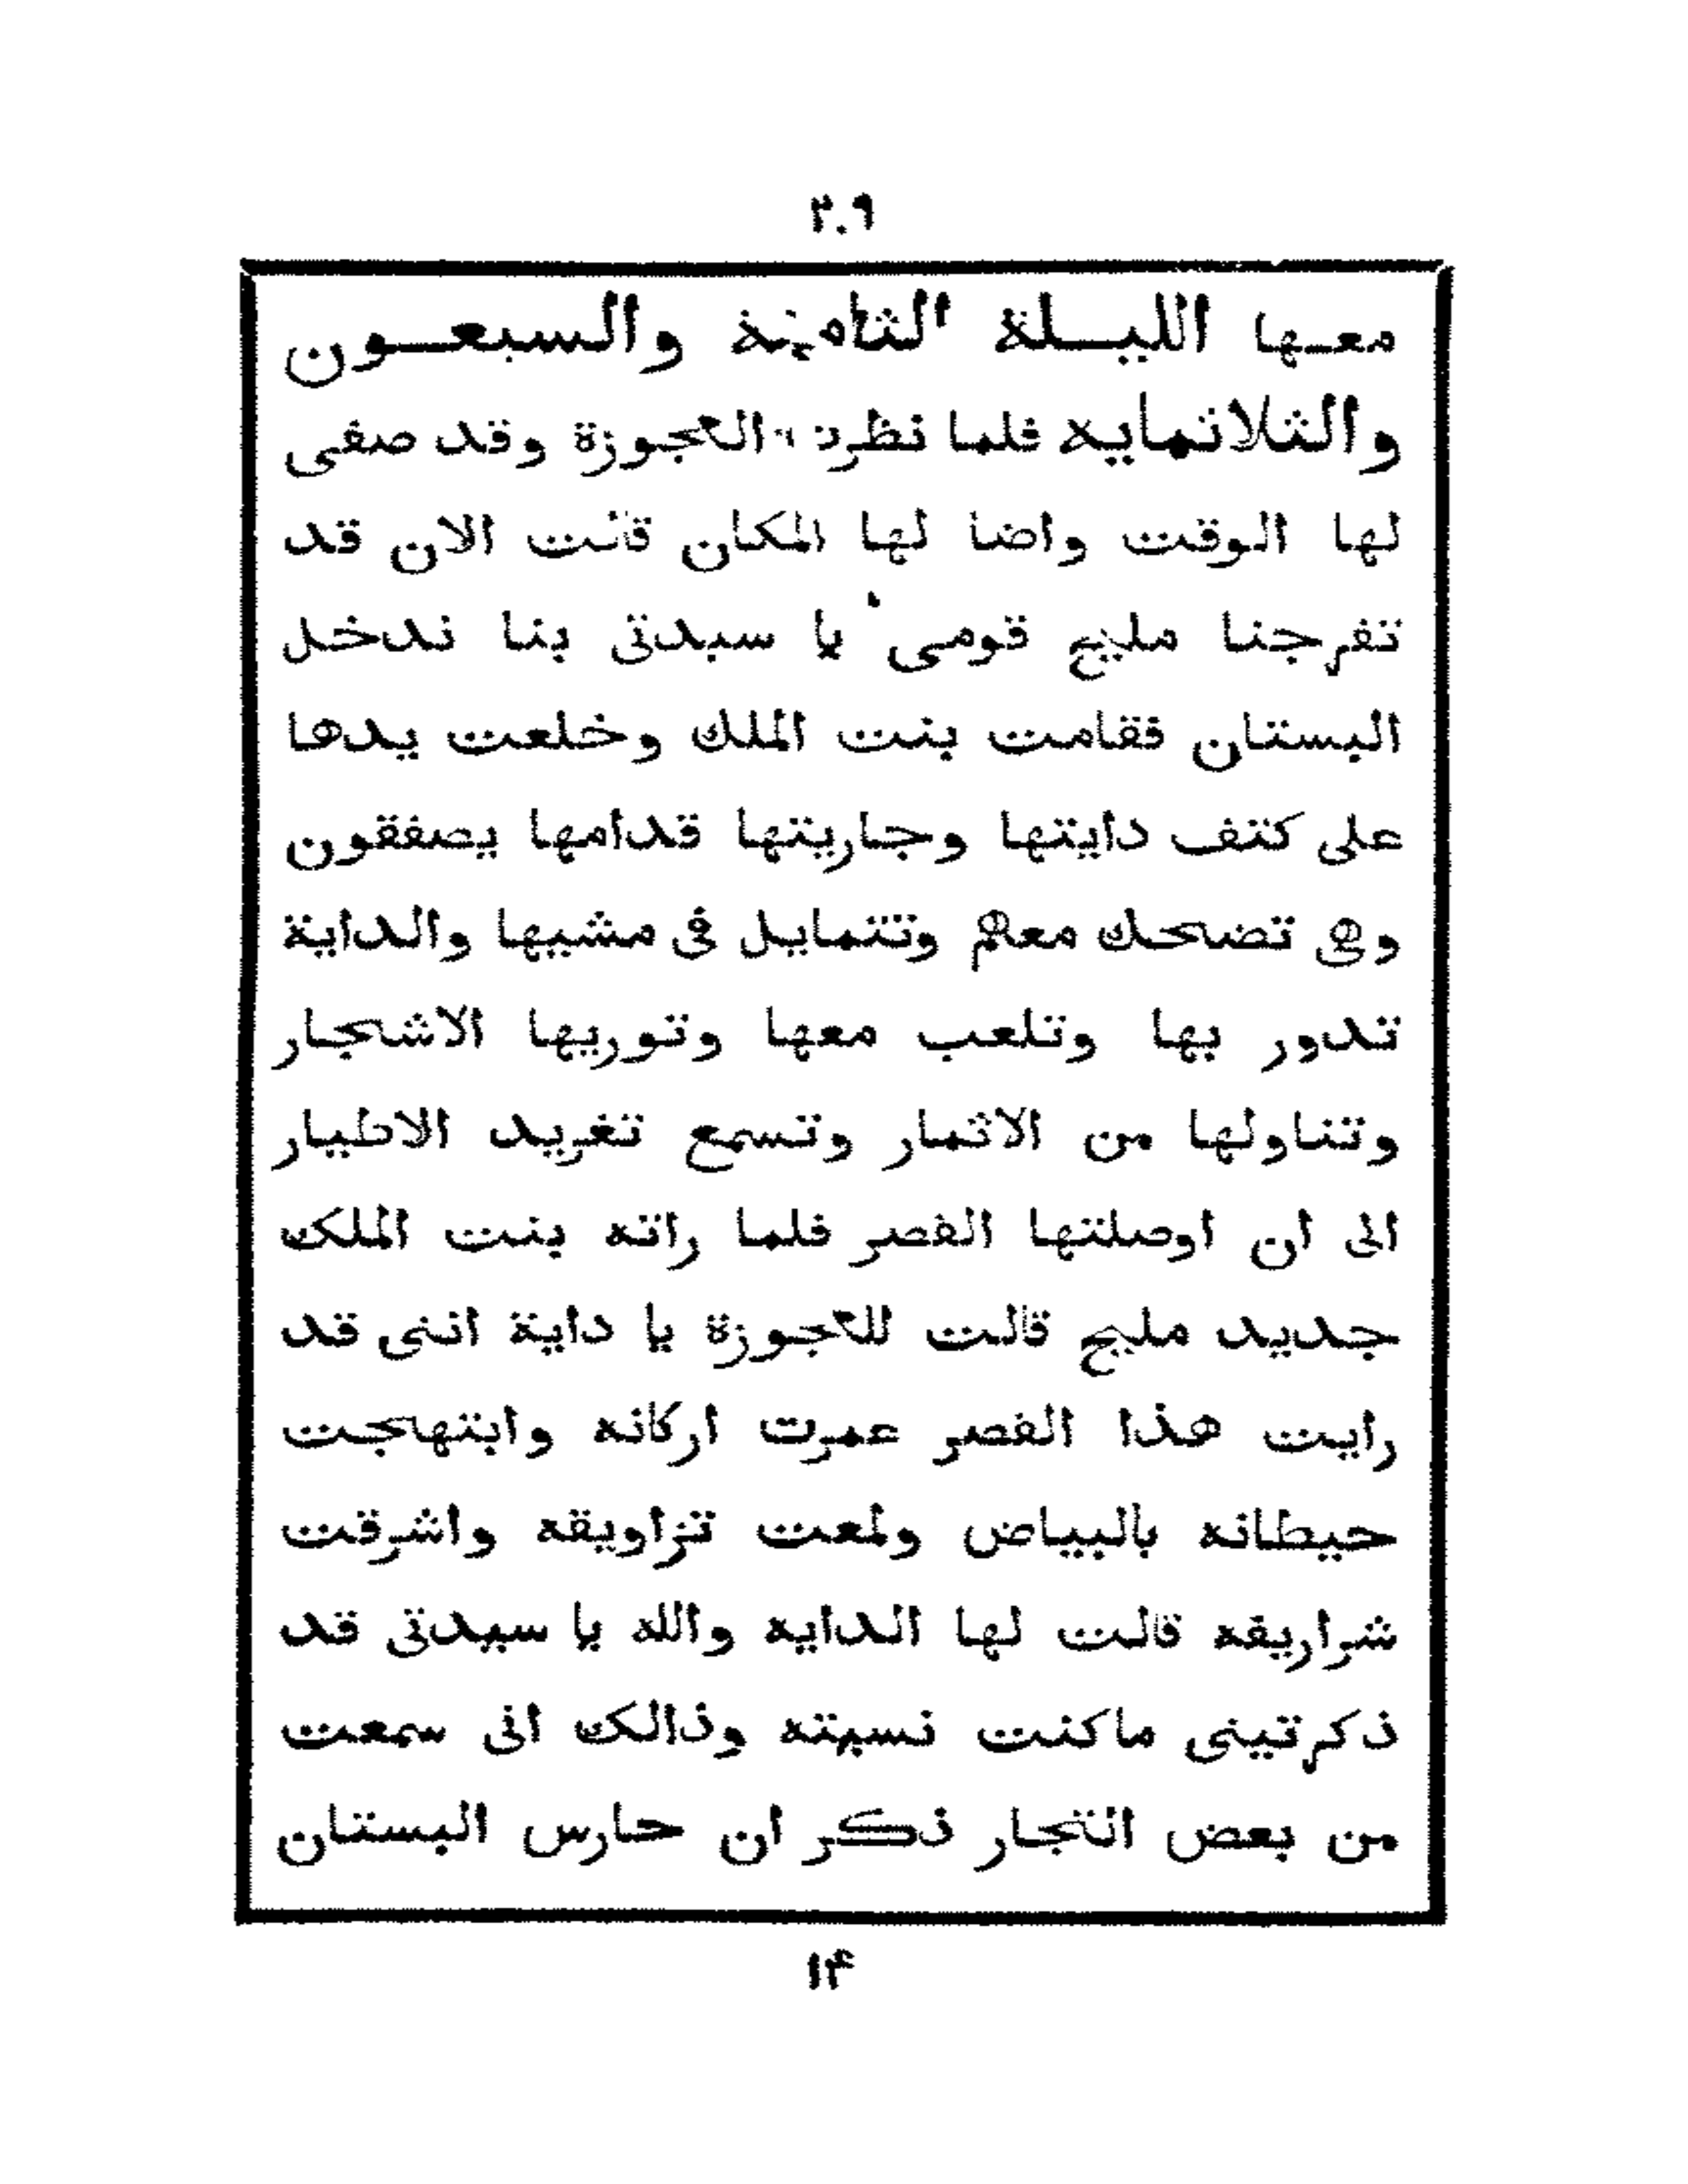 ٢٠٩
معها الليلة الثامنة والسبعون
والثلاثمايه فلما نظرت العجوزة وقد صفى
لها الوقت واضا لها المكان قالت الان قد
تفرجنا مليح قومى يا سيدتى بنا ندخل
البستان فقامت بنت الملك وخلعت يدها
على كتف دايتها وجاريتها قدامها يصفقون
وهى تضحك معهم وتتمايل فى مشيها والداية
تدور بها وتلعب معها وتوريها الاشجار
وتناولها من الاثمار وتسمع تغريد الاطيار
الى ان اوصلتها القصر فلما راته بنت الملك
جديد مليح قالت للعجوزة يا داية اننى قد
رايت هذا القصر عمرت اركانه وابتهجت
حيطانه بالبياض ولمعت تزاويقه واشرقت
شراريفه قالت لها الدايه والله يا سيدتى قد
ذكرتينى ماكنت نسيته وذالك انى سمعت
من بعض التجار ذكر ان حارس البستان
١٤